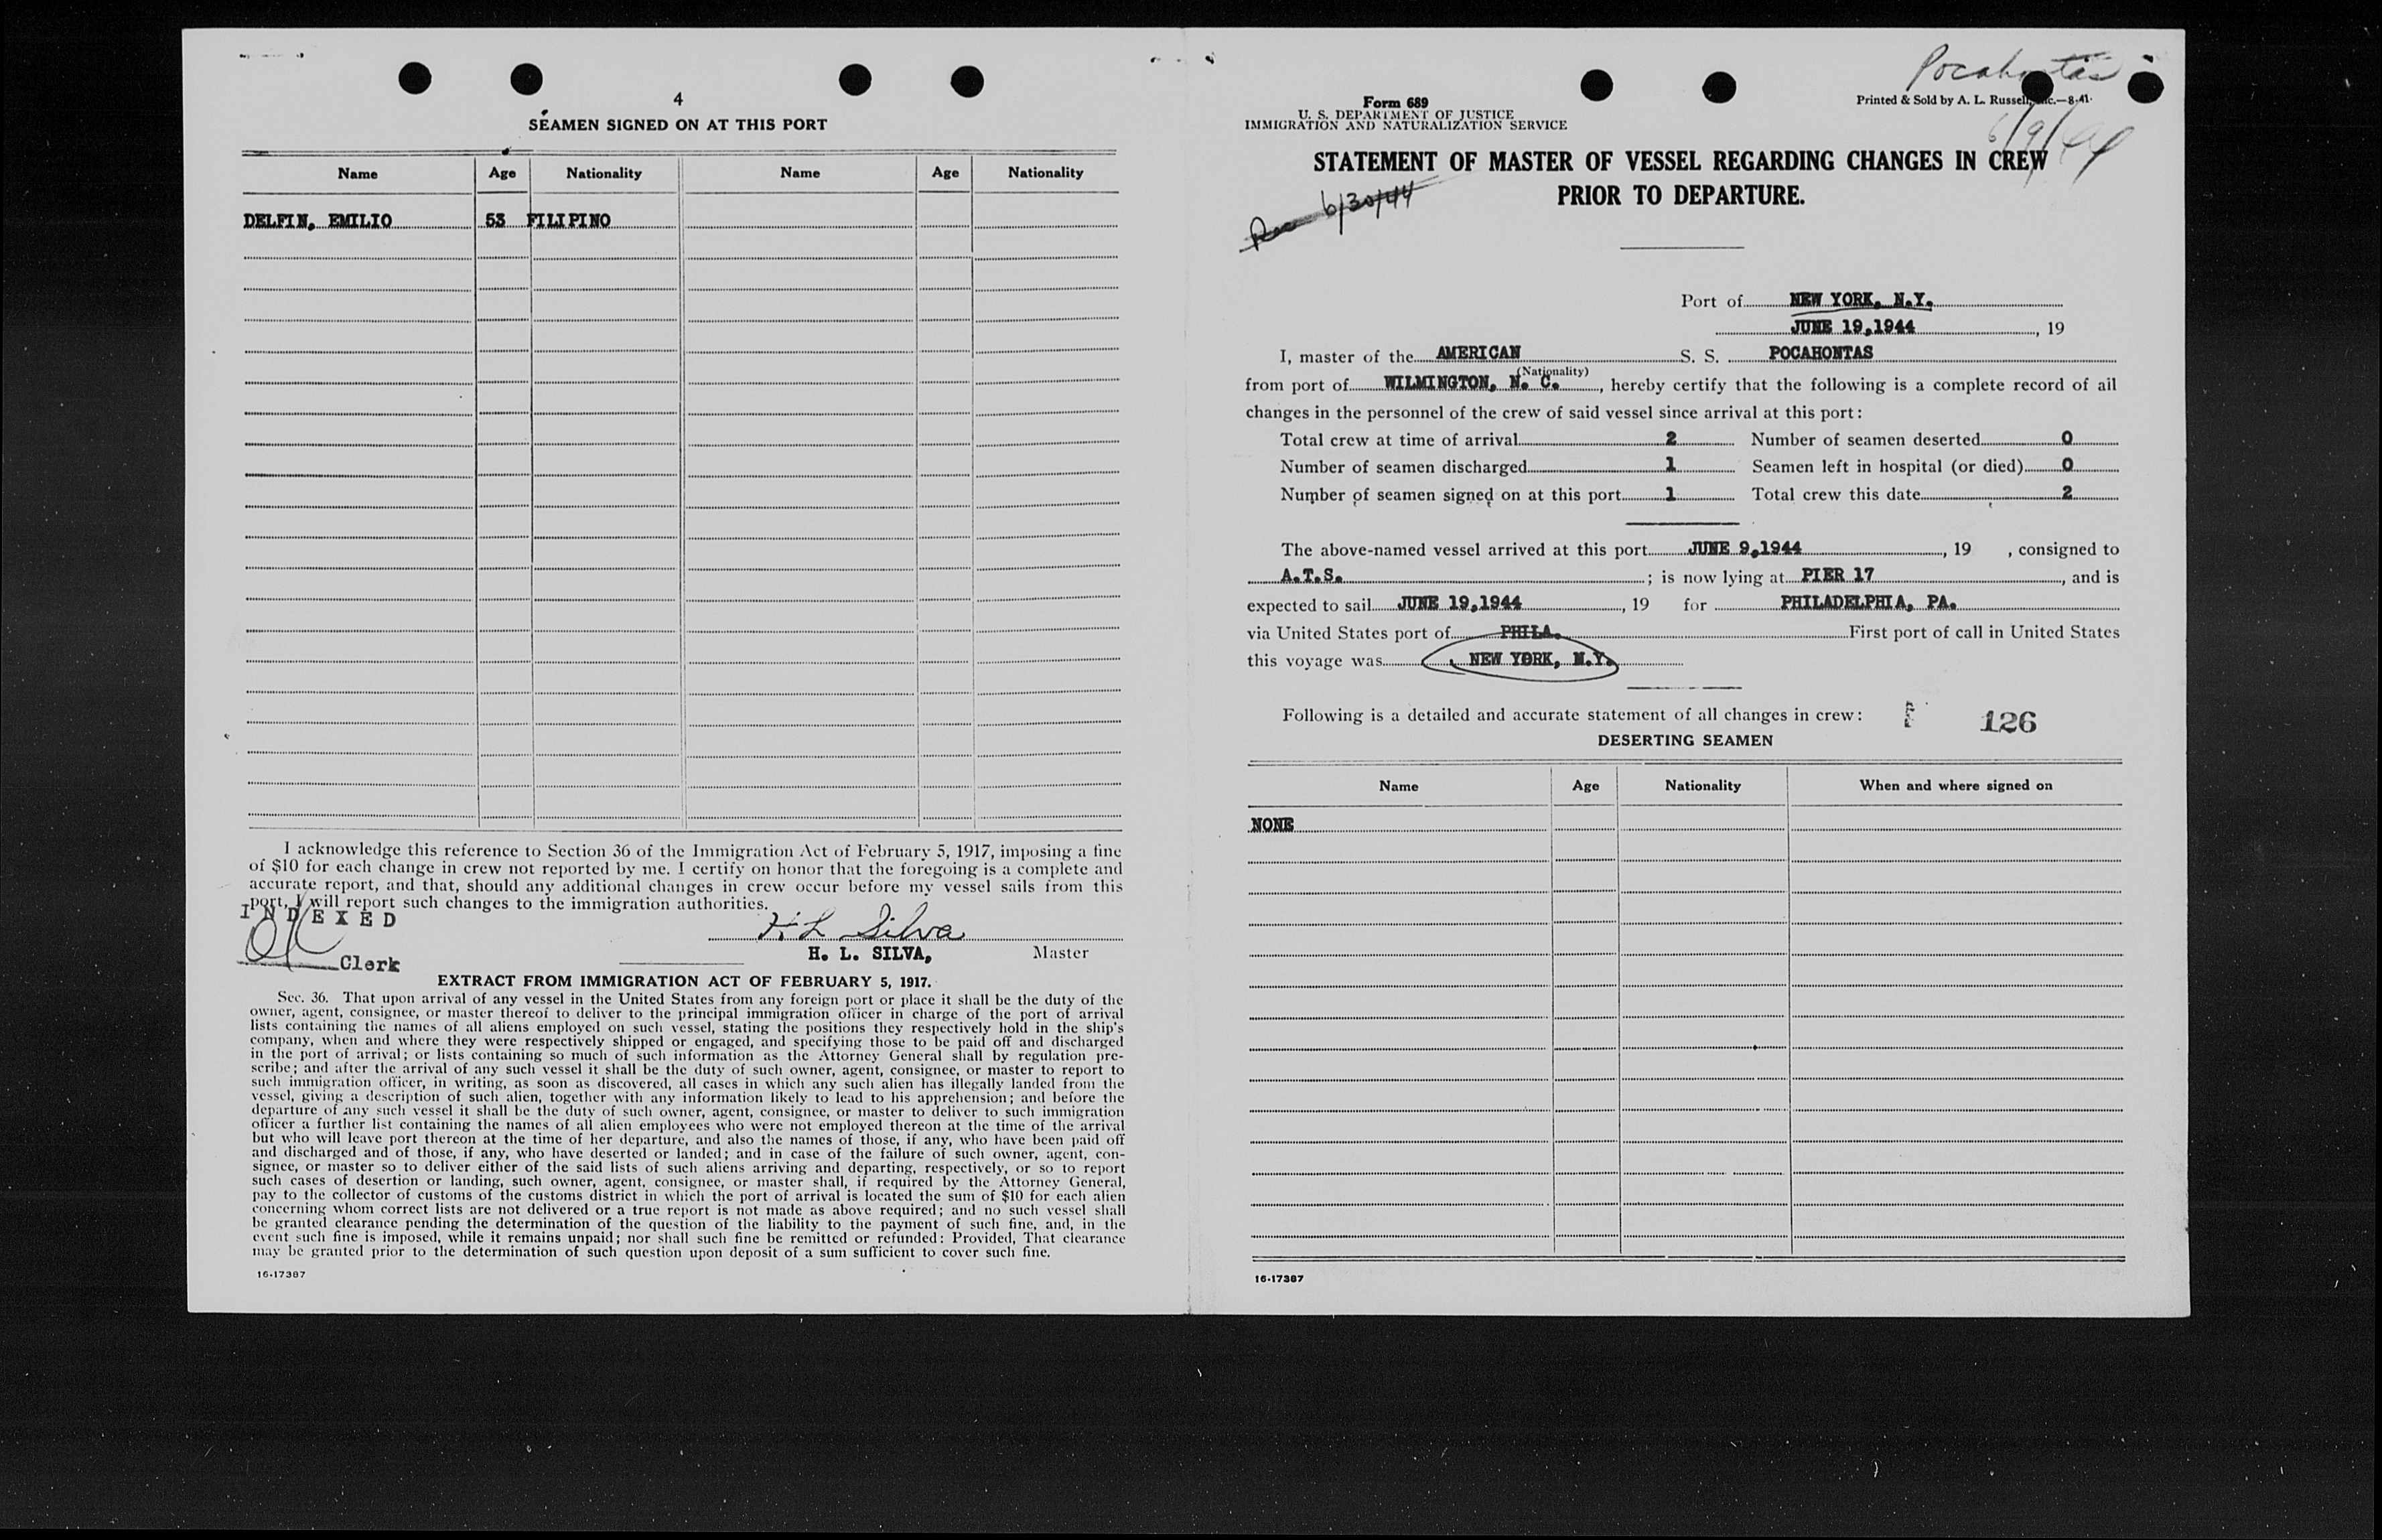 4
SEAMEN SIGNED ON AT THIS PORT
Name Age Nationality Name Age Nationality
DELFIN, EMILIO 53 FILIPINO
I acknowledge this reference to Section 36 of the Immigration Act of February 5, 1917, imposing a fine
of $10 for each change in crew not reported by me. I certify on honor that the foregoing is a complete and
accurate report, and that, should any additional changes in crew occur before my vessel sails from this
port, I will report such changes to the immigration authorities.
INDEXED
H L Silva
H. L. SILVA, Master
Clerk
EXTRACT FROM IMMIGRATION ACT OF FEBRUARY 5, 1917.
Sec. 36. That upon arrival of any vessel in the United States from any foreign port or place it shall be the duty of the
owner, agent, consignee, or master thereof to deliver to the principal immigration officer in charge of the port of arrival
lists containing the names of all aliens employed on such vessel, stating the positions they respectively hold in the ship's
company, when and where they were respectively shipped or engaged, and specifying those to be paid off and discharged
in the port of arrival; or lists containing so much of such information as the Attorney General shall by regulation pre-
scribe; and after the arrival of any such vessel it shall be the duty of such owner, agent, consignee, or master to report to
such immigration officer, in writing, as soon as discovered, all cases in which any such alien has illegally landed from the
vessel, giving a description of such alien, together with any information likely to lead to his apprehension; and before the
departure of any such vessel it shall be the duty of such owner, agent, consignee, or master to deliver to such immigration
officer a further list containing the names of all alien employees who were not employed thereon at the time of the arrival
but who will leave port thereon at the time of her departure, and also the names of those, if any, who have been paid off
and discharged and of those, if any, who have deserted or landed; and in case of the failure of such owner, agent, con-
signee, or master so to deliver either of the said lists of such aliens arriving and departing, respectively, or so to report
such cases of desertion or landing, such owner, agent, consignee, or master shall, if required by the Attorney General,
pay to the collector of customs of the customs district in which the port of arrival is located the sum of $10 for each alien
concerning whom correct lists are not delivered or a true report is not made as above required; and no such vessel shall
be granted clearance pending the determination of the question of the liability to the payment of such fine, and, in the
event such fine is imposed, while it remains unpaid; nor shall such fine be remitted or refunded: Provided, That clearance
may be granted prior to the determination of such question upon deposit of a sum sufficient to cover such fine.
16-17387
Pocahontas
Form 689
Printed & Sold by A. L. Russell, Inc.—8-41
U. S. DEPARTMENT OF JUSTICE
IMMIGRATION AND NATURALIZATION SERVICE
6/9/44
STATEMENT OF MASTER OF VESSEL REGARDING CHANGES IN CREW
PRIOR TO DEPARTURE.
6/30/44
Port of NEW YORK, N.Y.
JUNE 19,1944, 19
I, master of the AMERICAN S. S. POCAHONTAS
(Nationality)
from port of WILMINGTON, N. C., hereby certify that the following is a complete record of all
changes in the personnel of the crew of said vessel since arrival at this port:
Total crew at time of arrival 2 Number of seamen deserted 0
Number of seamen discharged 1 Seamen left in hospital (or died) 0
Number of seamen signed on at this port 1 Total crew this date 2
The above-named vessel arrived at this port JUNE 9,1944, 19 , consigned to
A.T.S. ; is now lying at PIER 17, and is
expected to sail JUNE 19,1944, 19 for PHILADELPHIA, PA.
via United States port of PHILA. First port of call in United States
this voyage was NEW YORK, N.Y.
Following is a detailed and accurate statement of all changes in crew:
126
DESERTING SEAMEN
Name Age Nationality When and where signed on
NONE
16-17387